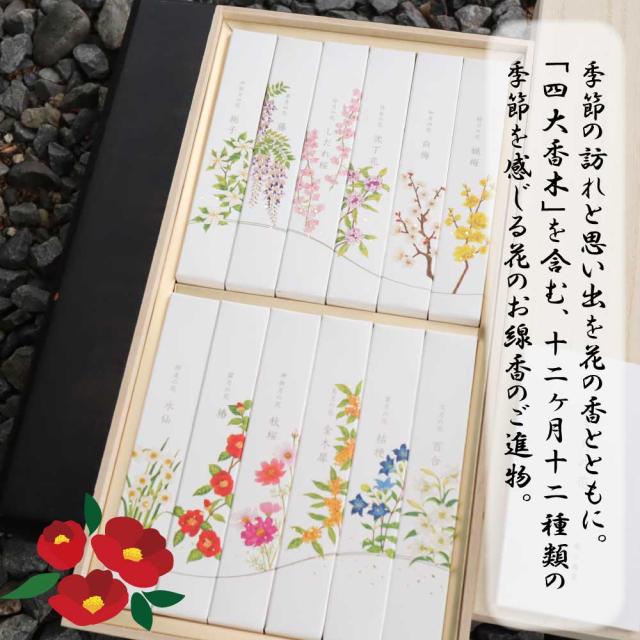 季節の訪れと思い出を花の香とともに。
「四大香木」を含む、十二ヶ月十二種類の
季節を感じる花のお線香のご進物。
蝋梅
白梅
沈丁花
しだれ桜
藤
梔子
百合
桔梗
金木犀
秋桜
椿
水仙